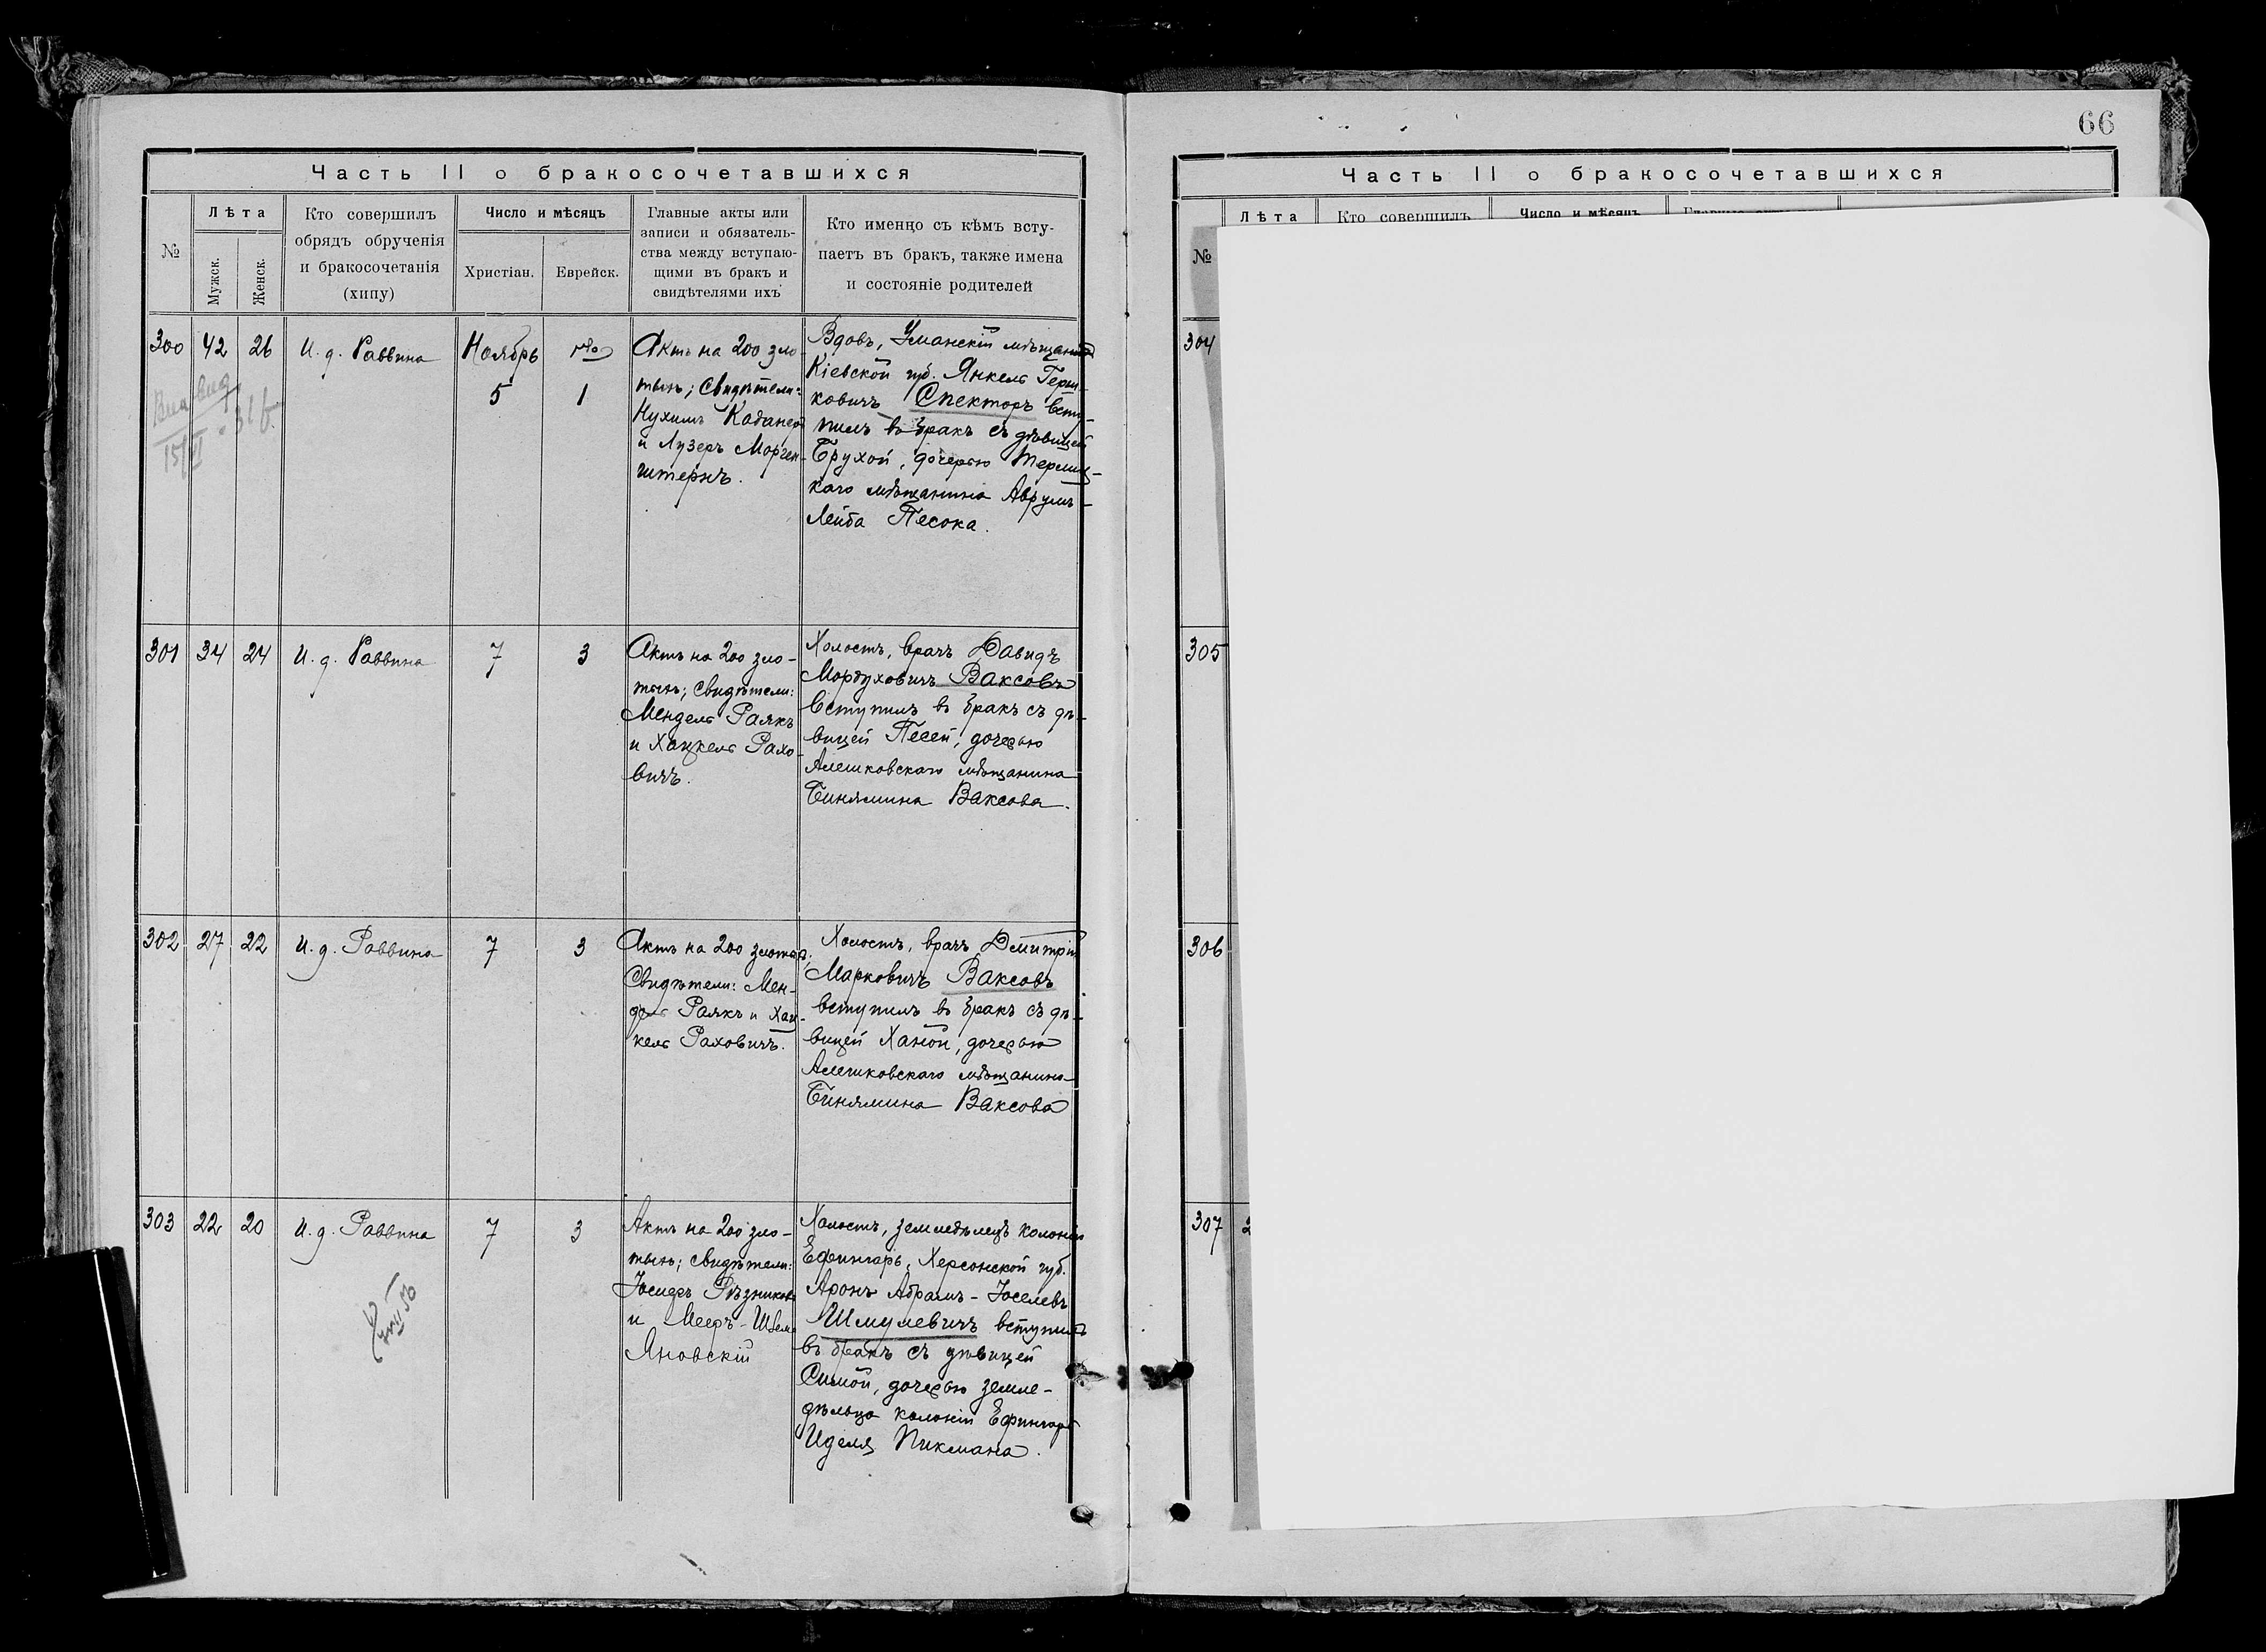 66
Часть II о бракосочетавшихся
№
Лѣта
Мужск.
Женск.
Кто совершилъ
обрядъ обрученія
и бракосочетанія
(хипу)
Число и мѣсяцъ
Христіан.
Еврейск.
Главные акты или
записи и обязатель-
ства между вступаю-
щими въ бракъ и
свидѣтелями ихъ
Кто именно съ кѣмъ всту-
паетъ въ бракъ, также имена
и состояніе родителей
300
42
26
И. д. Раввина
Ноябрь
5
1
Актъ на 200 зло-
тыхъ; Свидѣтели:
Нухимъ
и Лузеръ Морген-
штернъ.
Вдовъ, Уманскій мѣщанинъ
Кіевской губ. Янкель Герш-
ковичъ Спекторъ всту-
пилъ въ бракъ съ дѣвицей
Брухой, дочерью
каго мѣщанина Аврумъ-
Лейба Песока.
301
34
24
И. д. Раввина
7
3
Актъ на 200 зло-
тыхъ; свидѣтели:
Мендель Раякъ
и Хацкель Рахо-
вичъ.
Холостъ, врачъ Давидъ
Мордуховичъ Ваксовъ
вступилъ въ бракъ съ дѣ-
вицей Песей, дочерью
Алешковскаго мѣщанина
Бинямина Ваксова.
302
27
22
И. д. Раввина
7
3
Актъ на 200 злотыхъ;
Свидѣтели: Мен-
дель Раякъ и Хац-
кель Раховичъ.
Холостъ, врачъ Дмитрій
Марковичъ Ваксовъ
вступилъ въ бракъ съ дѣ-
вицей Ханой, дочерью
Алешковскаго мѣщанина
Бинямина Ваксова
303
22
20
И. д. Раввина
7
3
Актъ на 200 зло-
тыхъ; свидѣтели:
Іосифъ Рѣзниковъ
и Мееръ-
Яновскій
Холостъ, земледѣлецъ колоніи
Ефингарь, Херсонской губ.
Аронъ Абрамъ-Іоселевъ
Шмулевичъ вступилъ
въ бракъ съ дѣвицей
Симой, дочерью земле-
дѣльца колоніи Ефингарь
Иделя Пикмана.
Часть II о бракосочетавшихся
№
Лѣта
Кто совершилъ
Число и мѣсяцъ
304
305
306
307